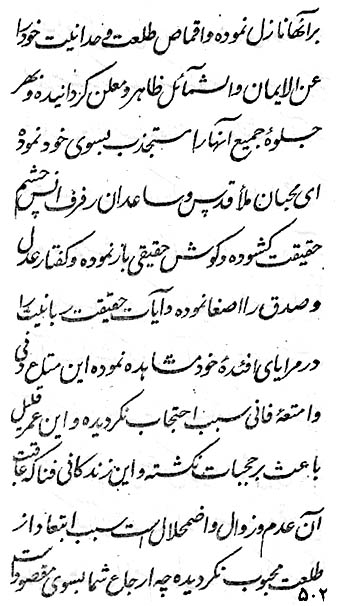 بر آنها نازل نموده و اقماص طلعت وحدانیت خود را
عن الایمان والشمائل ظاهر و معلن کردانیده و بهر
جلوهٔ جمیع آنها را مستجذب بسوی خود نموده
ای محبان ملأ قدس و ساعدان رفرف انس چشم
حقیقت کشوده و کوش حقیقی باز نموده و کفتار عدل
و صدق را اصغا نموده و آیات حقیقت ربانیت را
در مرایای افئدهٔ خود مشاهده نموده این متاع دنی
و امتعهٔ فانی سبب احتجاب نکردیده و این عمر قلیل
باعث بر حجبات نکشته و این زندکانی فنا که عاقبت
آن عدم و زوال و اضمحلال است سبب ابتعاد از
طلعت محبوب نکردیده چه ارجاع شما بسوی مقصود است
۵۰۲